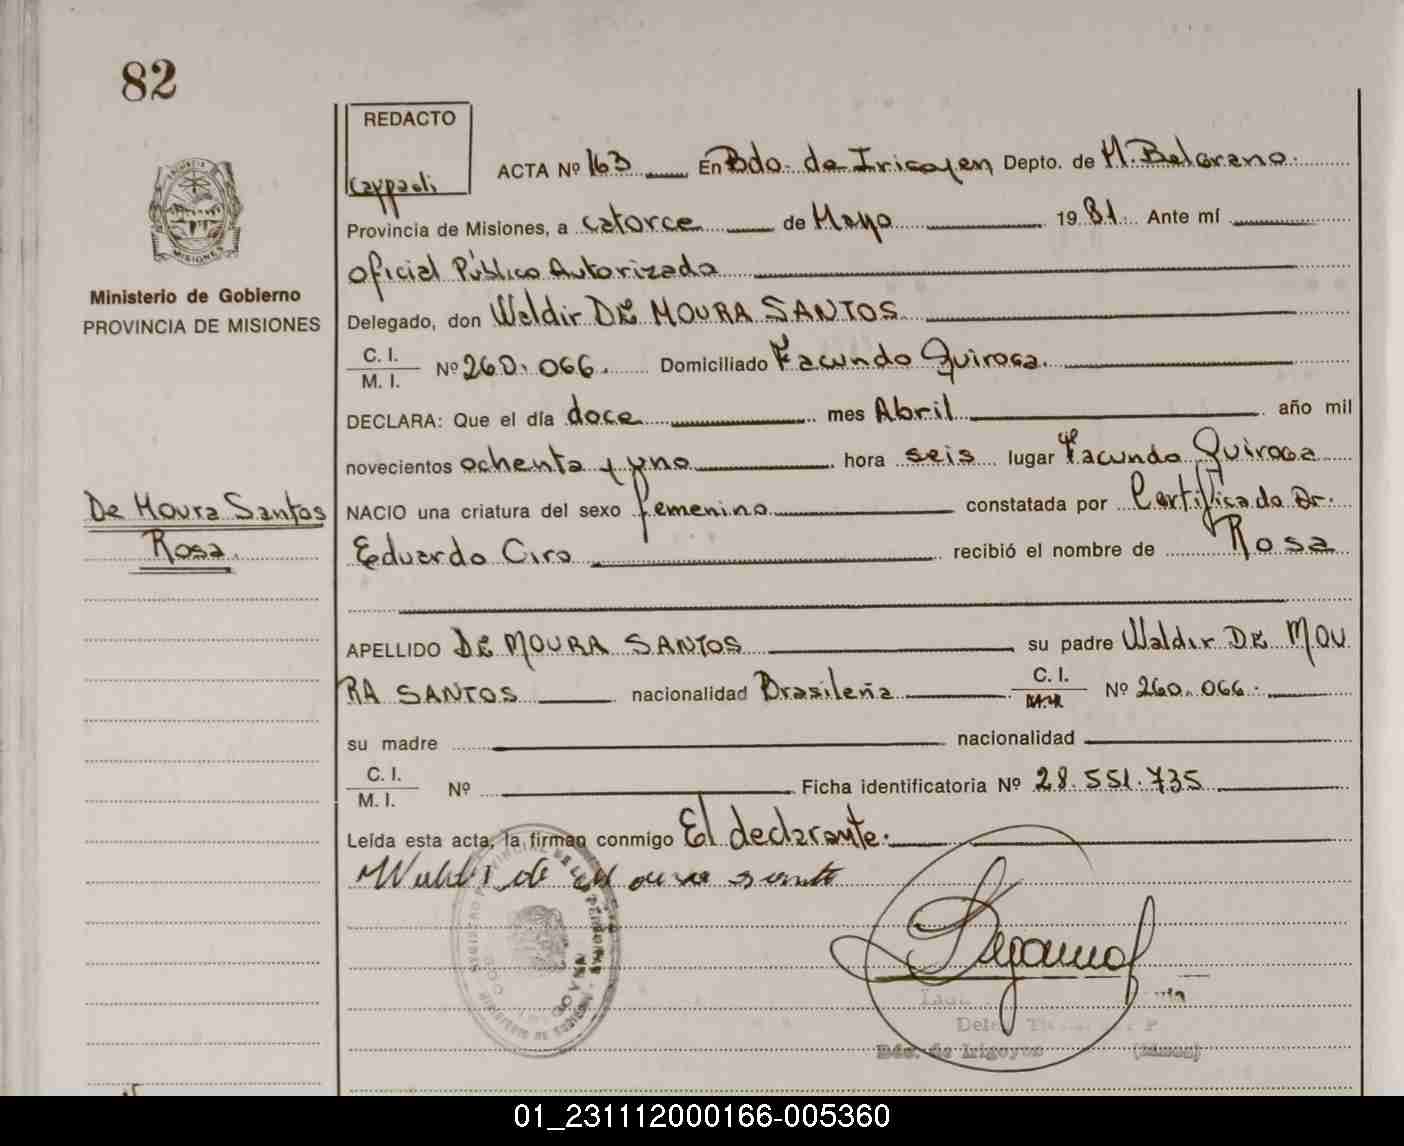 82
REDACTO
Cappaoli
ACTA Nº 163 En Bdo. de Irigoyen Depto. de M. Belgrano.
Provincia de Misiones, a catorce de Mayo 1981 Ante mí
Oficial Público Autorizado
Ministerio de Gobierno
PROVINCIA DE MISIONES
Delegado, don Waldir DE MOURA SANTOS
C. I.
M. I. Nº 260.066. Domiciliado Facundo Quiroga.
DECLARA: Que el día doce mes Abril año mil
novecientos ochenta y uno hora seis lugar Facundo Quiroga
De Moura Santos
Rosa.
NACIO una criatura del sexo femenino constatada por Certificado Dr.
Eduardo Ciro recibió el nombre de Rosa
APELLIDO DE MOURA SANTOS su padre Waldir DE MOU
RA SANTOS nacionalidad Brasileña C. I. M. I. Nº 260.066.
su madre nacionalidad
C. I.
M. I. Nº Ficha identificatoria Nº 28.551.735
Leída esta acta, la firman conmigo El declarante.
de Moura
Bdo. de Irigoyen (Mnes)
01_231112000166-005360